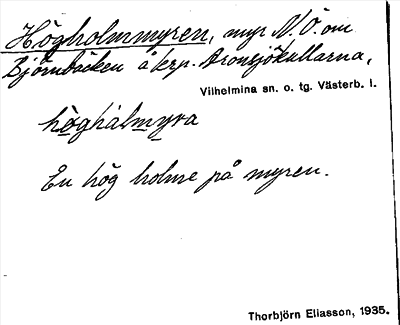 Högholmmyren, myr N.Ö. om
Björnbäcken å krp. Aronsjökullarna,
Vilhelmina sn. o. tg. Västerb. l.
hòghálmyra
En hög holme på myren.
Thorbjörn Eliasson, 1935.